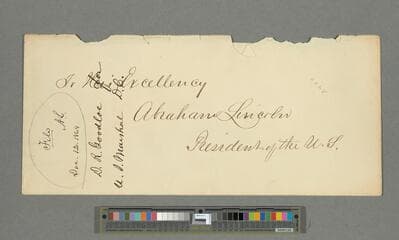 To His Excellency
Abraham Lincoln
President of the U. S.
D. R. Goodloe
U. S. Marshal D. C.
File
Dec. 12. 1864